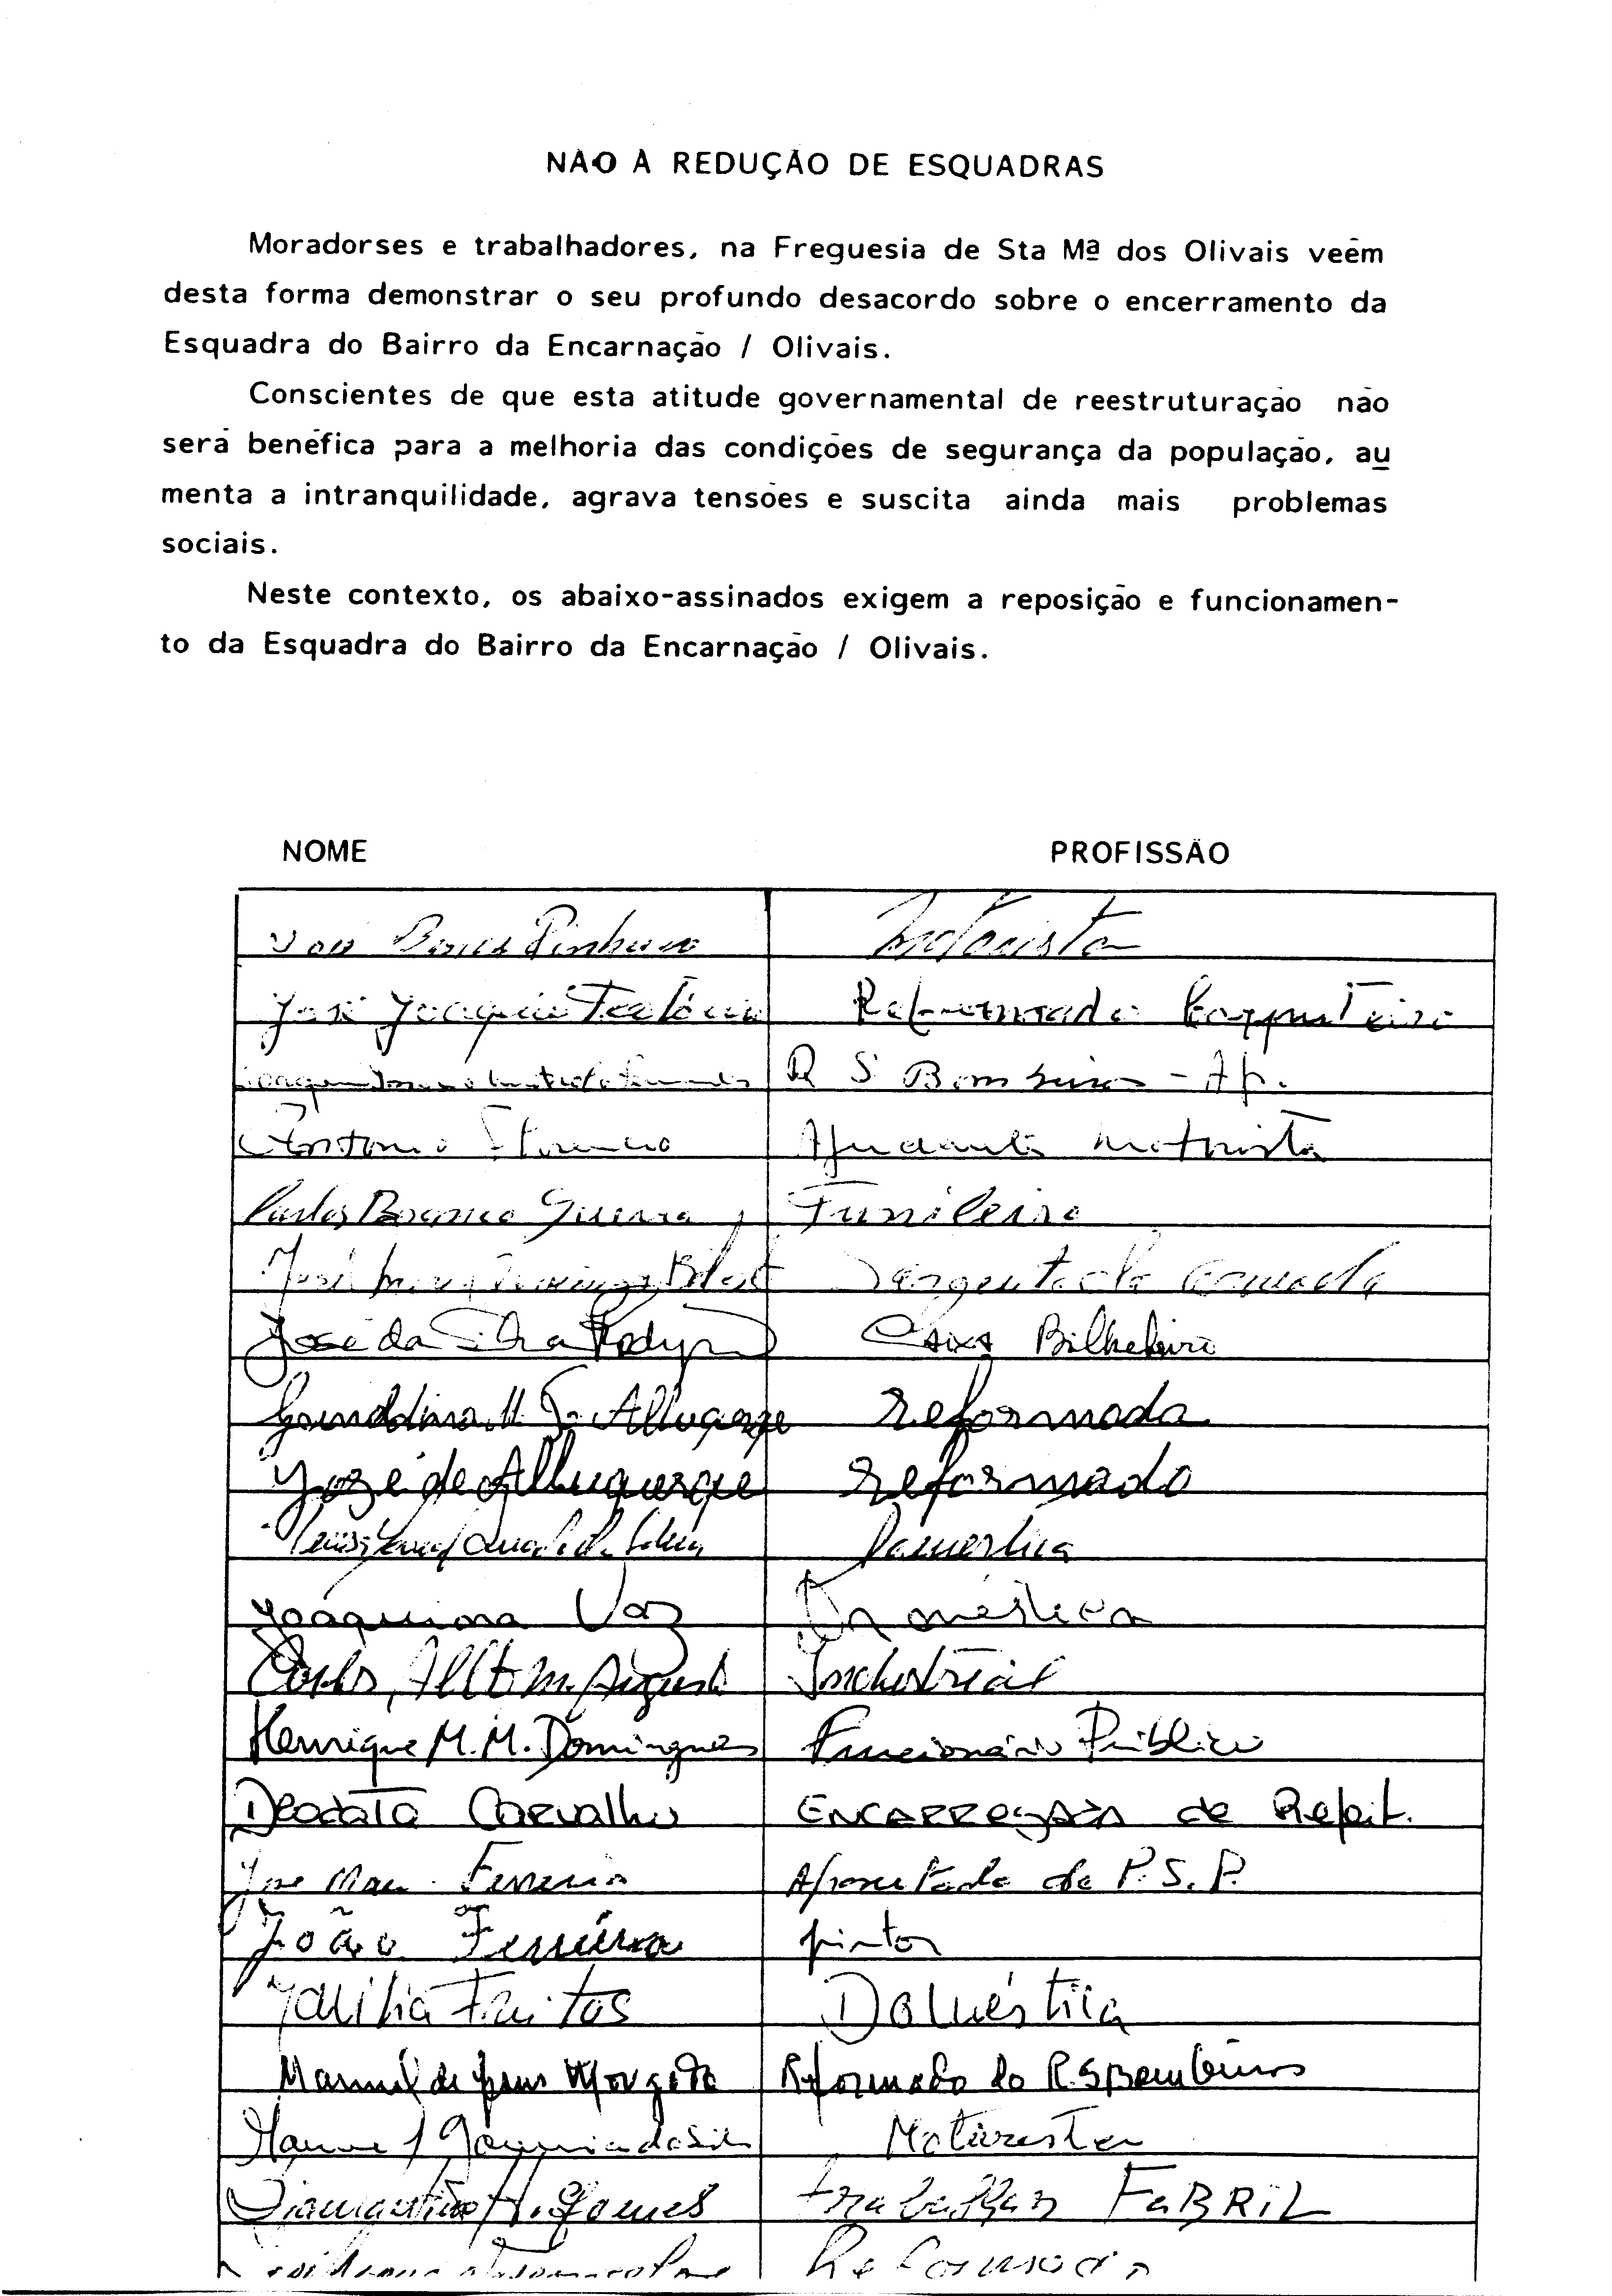 NÃO À REDUÇÃO DE ESQUADRAS
Moradorses e trabalhadores, na Freguesia de Sta Mª dos Olivais veêm
desta forma demonstrar o seu profundo desacordo sobre o encerramento da
Esquadra do Bairro da Encarnação / Olivais.
Conscientes de que esta atitude governamental de reestruturação não
será benéfica para a melhoria das condições de segurança da população, au
menta a intranquilidade, agrava tensões e suscita ainda mais problemas
sociais.
Neste contexto, os abaixo-assinados exigem a reposição e funcionamen-
to da Esquadra do Bairro da Encarnação / Olivais.
NOME PROFISSÃO
Pinheiro Motorista
José Joaquim Reformado Carpinteiro
R S Bombeiros - Ap.
Antonio Florencio Ajudante motorista
Carlos Branco Guerra Funileiro
José Sargento da Armada
José da Silva Caixa Bilheteiro
reformada
José de Albuquerque reformado
Domestica
Joaquina Vaz Doméstica
Carlos Industrial
Henrique M. M. Domingues Funcionário Público
Deodata Carvalho ENCARREGADA de Refeit.
Ferreira Aposentado da P.S.P.
João Ferreira pintor
Freitas Doméstica
Manuel de Jesus Morgado Reformado do R.S Bombeiros
Motorista
Diamantino H. Gomes trabalhar FABRIL
Reformado